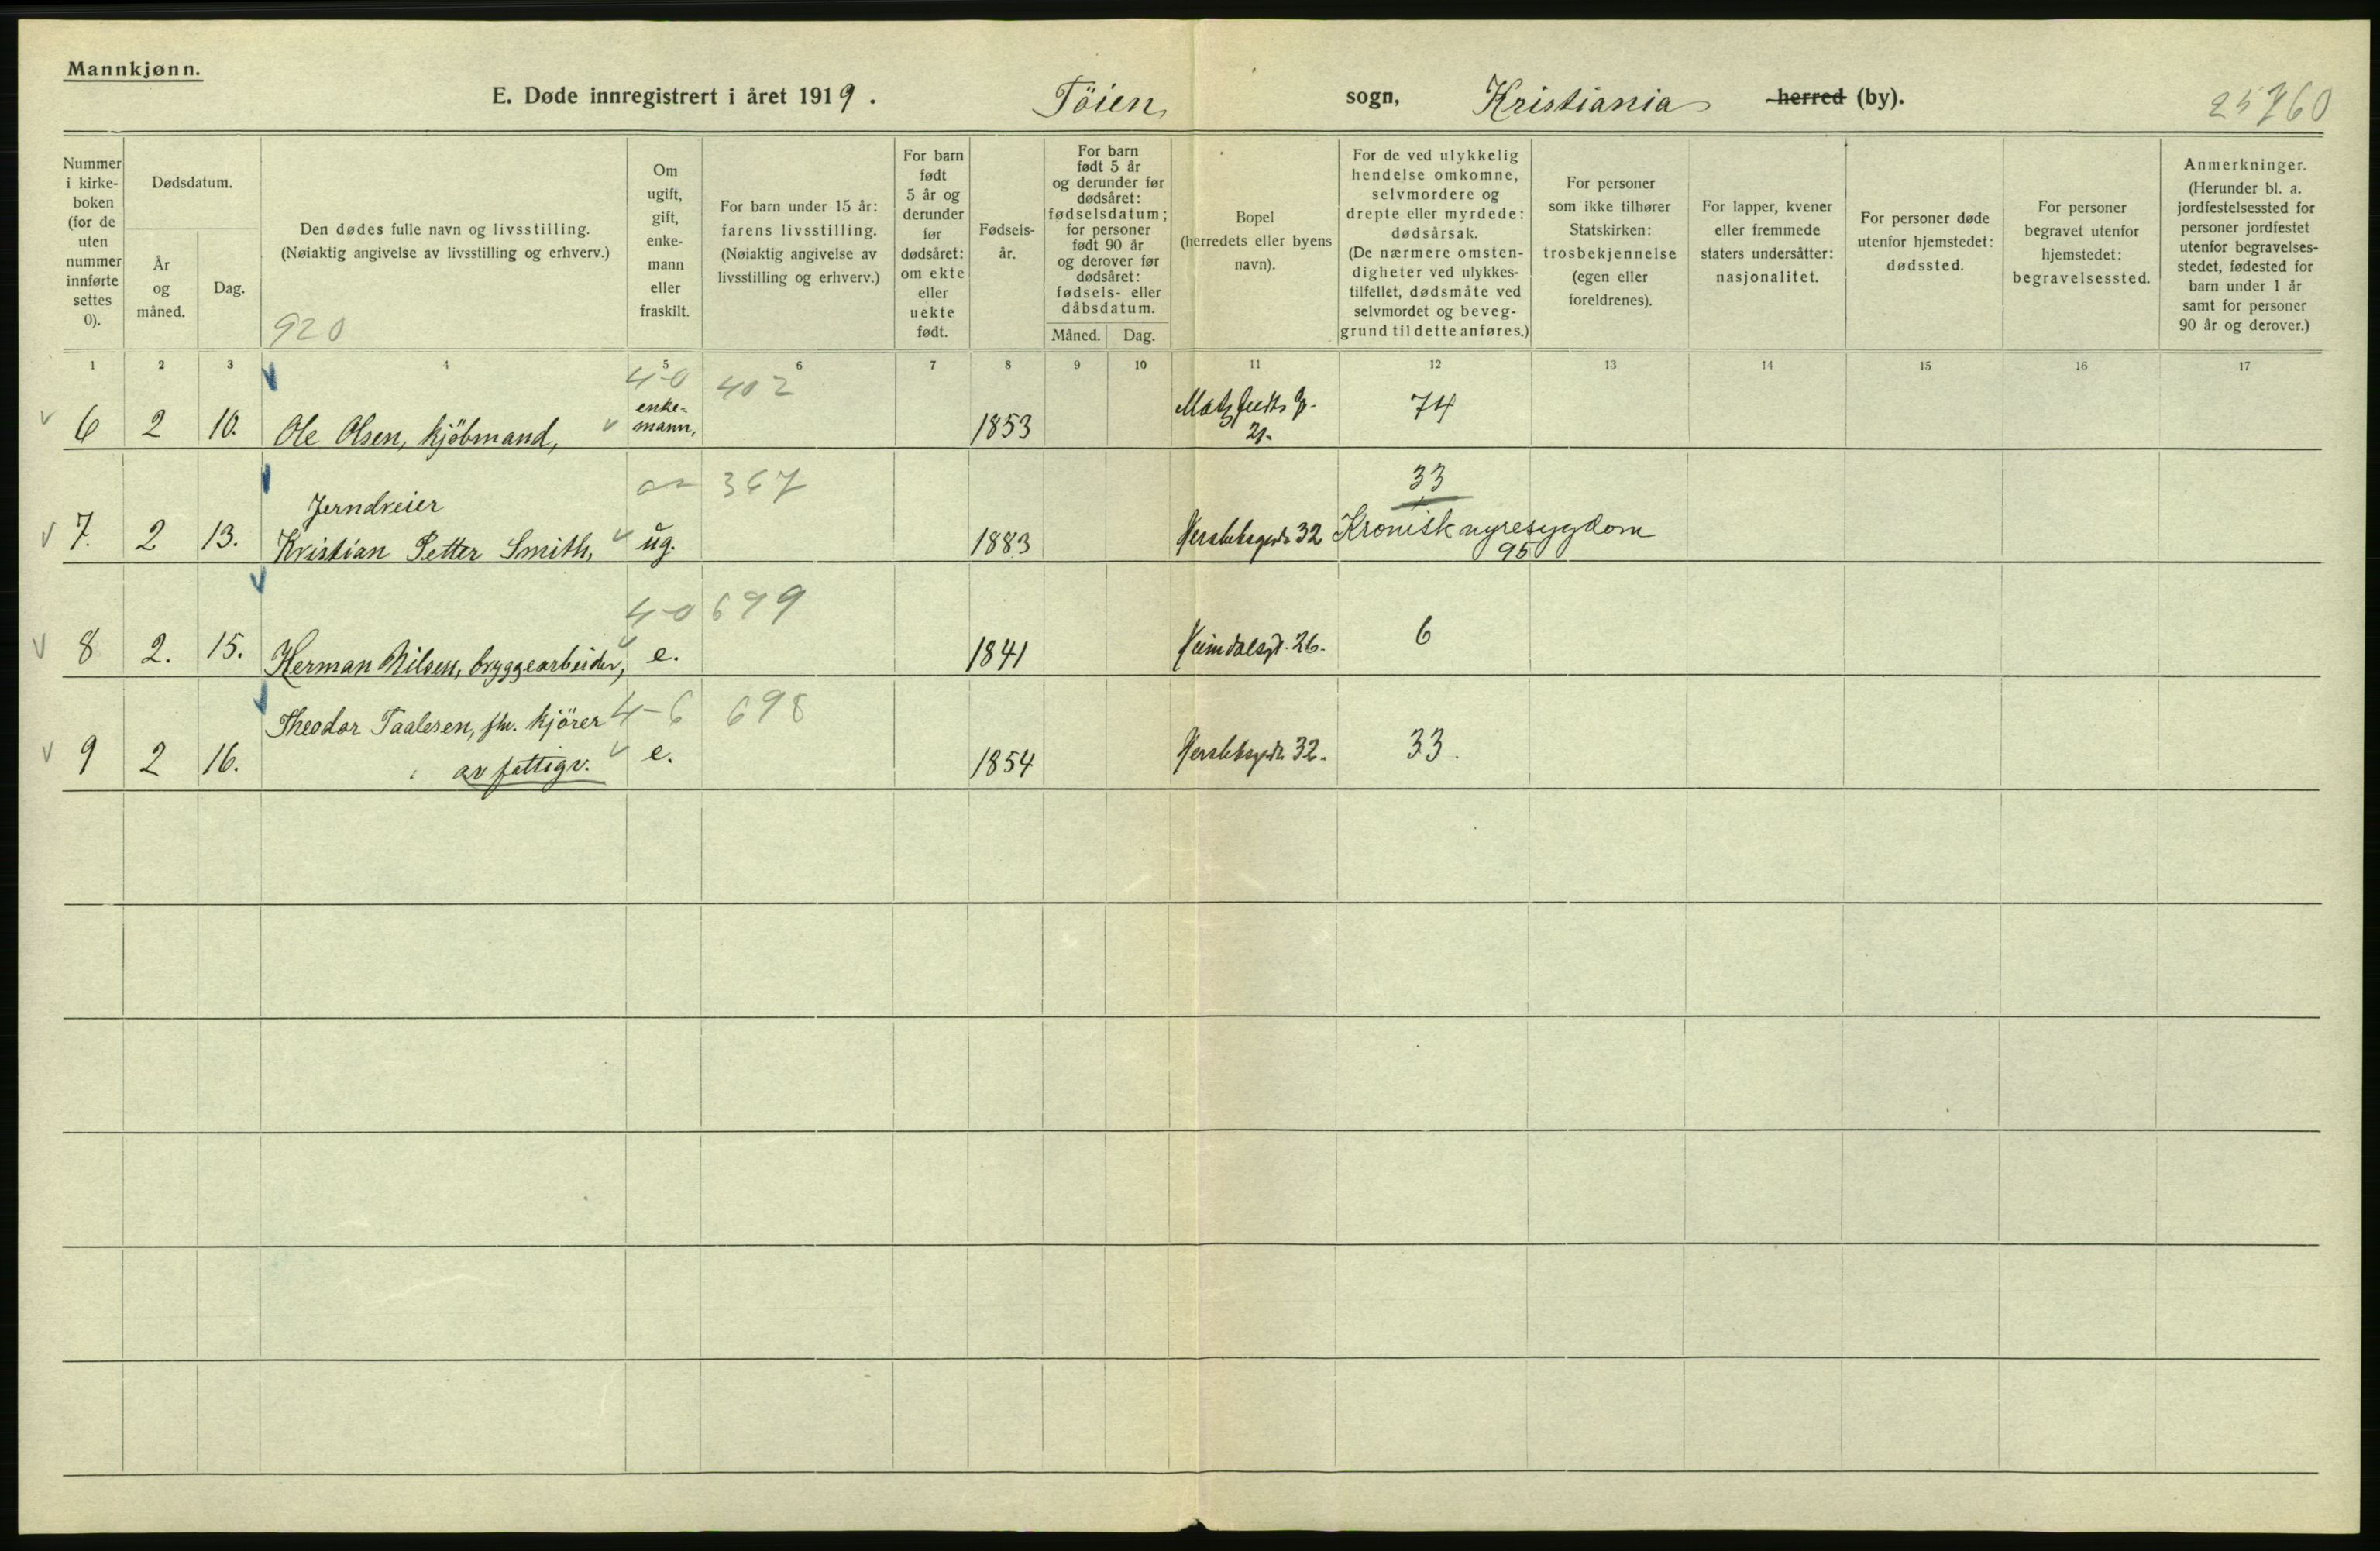 Mannkjønn.
E. Døde innregistrert i året 1919. Töien sogn, Kristiania herred (by). 25760
Nummer i kirke-boken (for de uten nummer innførte settes 0).
Dødsdatum.
År og måned.
Dag.
Den dødes fulle navn og livsstilling.
(Nøiaktig angivelse av livsstilling og erhverv.)
920
Om ugift, gift, enke-mann eller fraskilt.
For barn under 15 år: farens livsstilling.
(Nøiaktig angivelse av livsstilling og erhverv.)
For barn født 5 år og derunder før dødsåret: om ekte eller uekte født.
Fødsels-år.
For barn født 5 år og derunder før dødsåret: fødselsdatum; for personer født 90 år og derover før dødsåret: fødsels- eller dåbsdatum.
Måned. Dag.
Bopel (herredets eller byens navn).
For de ved ulykkelig hendelse omkomne, selvmordere og drepte eller myrdede: dødsårsak.
(De nærmere omsten-digheter ved ulykkes-tilfellet, dødsmåte ved selvmordet og beveg-grund til dette anføres.)
For personer som ikke tilhører Statskirken: trosbekjennelse (egen eller foreldrenes).
For lapper, kvener eller fremmede staters undersåtter: nasjonalitet.
For personer døde utenfor hjemstedet: dødssted.
For personer begravet utenfor hjemstedet: begravelsessted.
Anmerkninger.
(Herunder bl. a. jordfestelsessted for personer jordfestet utenfor begravelses-stedet, fødested for barn under 1 år samt for personer 90 år og derover.)
1 2 3 4 5 6 7 8 9 10 11 12 13 14 15 16 17
4-0 402
6 2 10. Ole Olsen, kjöbmand, enke-mann, 1853 21. 74
367 33
Jerndreier
7. 2 13. Kristian Petter Smith, ug. 1883 32 Kronisk nyresygdom
95
4-0 699
8 2. 15. Herman Nilsen, bryggearbeider, e. 1841 Heimdalsgt. 26. 6
Theodor Taalesen, fhv. kjörer 4-6 698
9 2 16. av fattigv. e. 1854 32. 33.